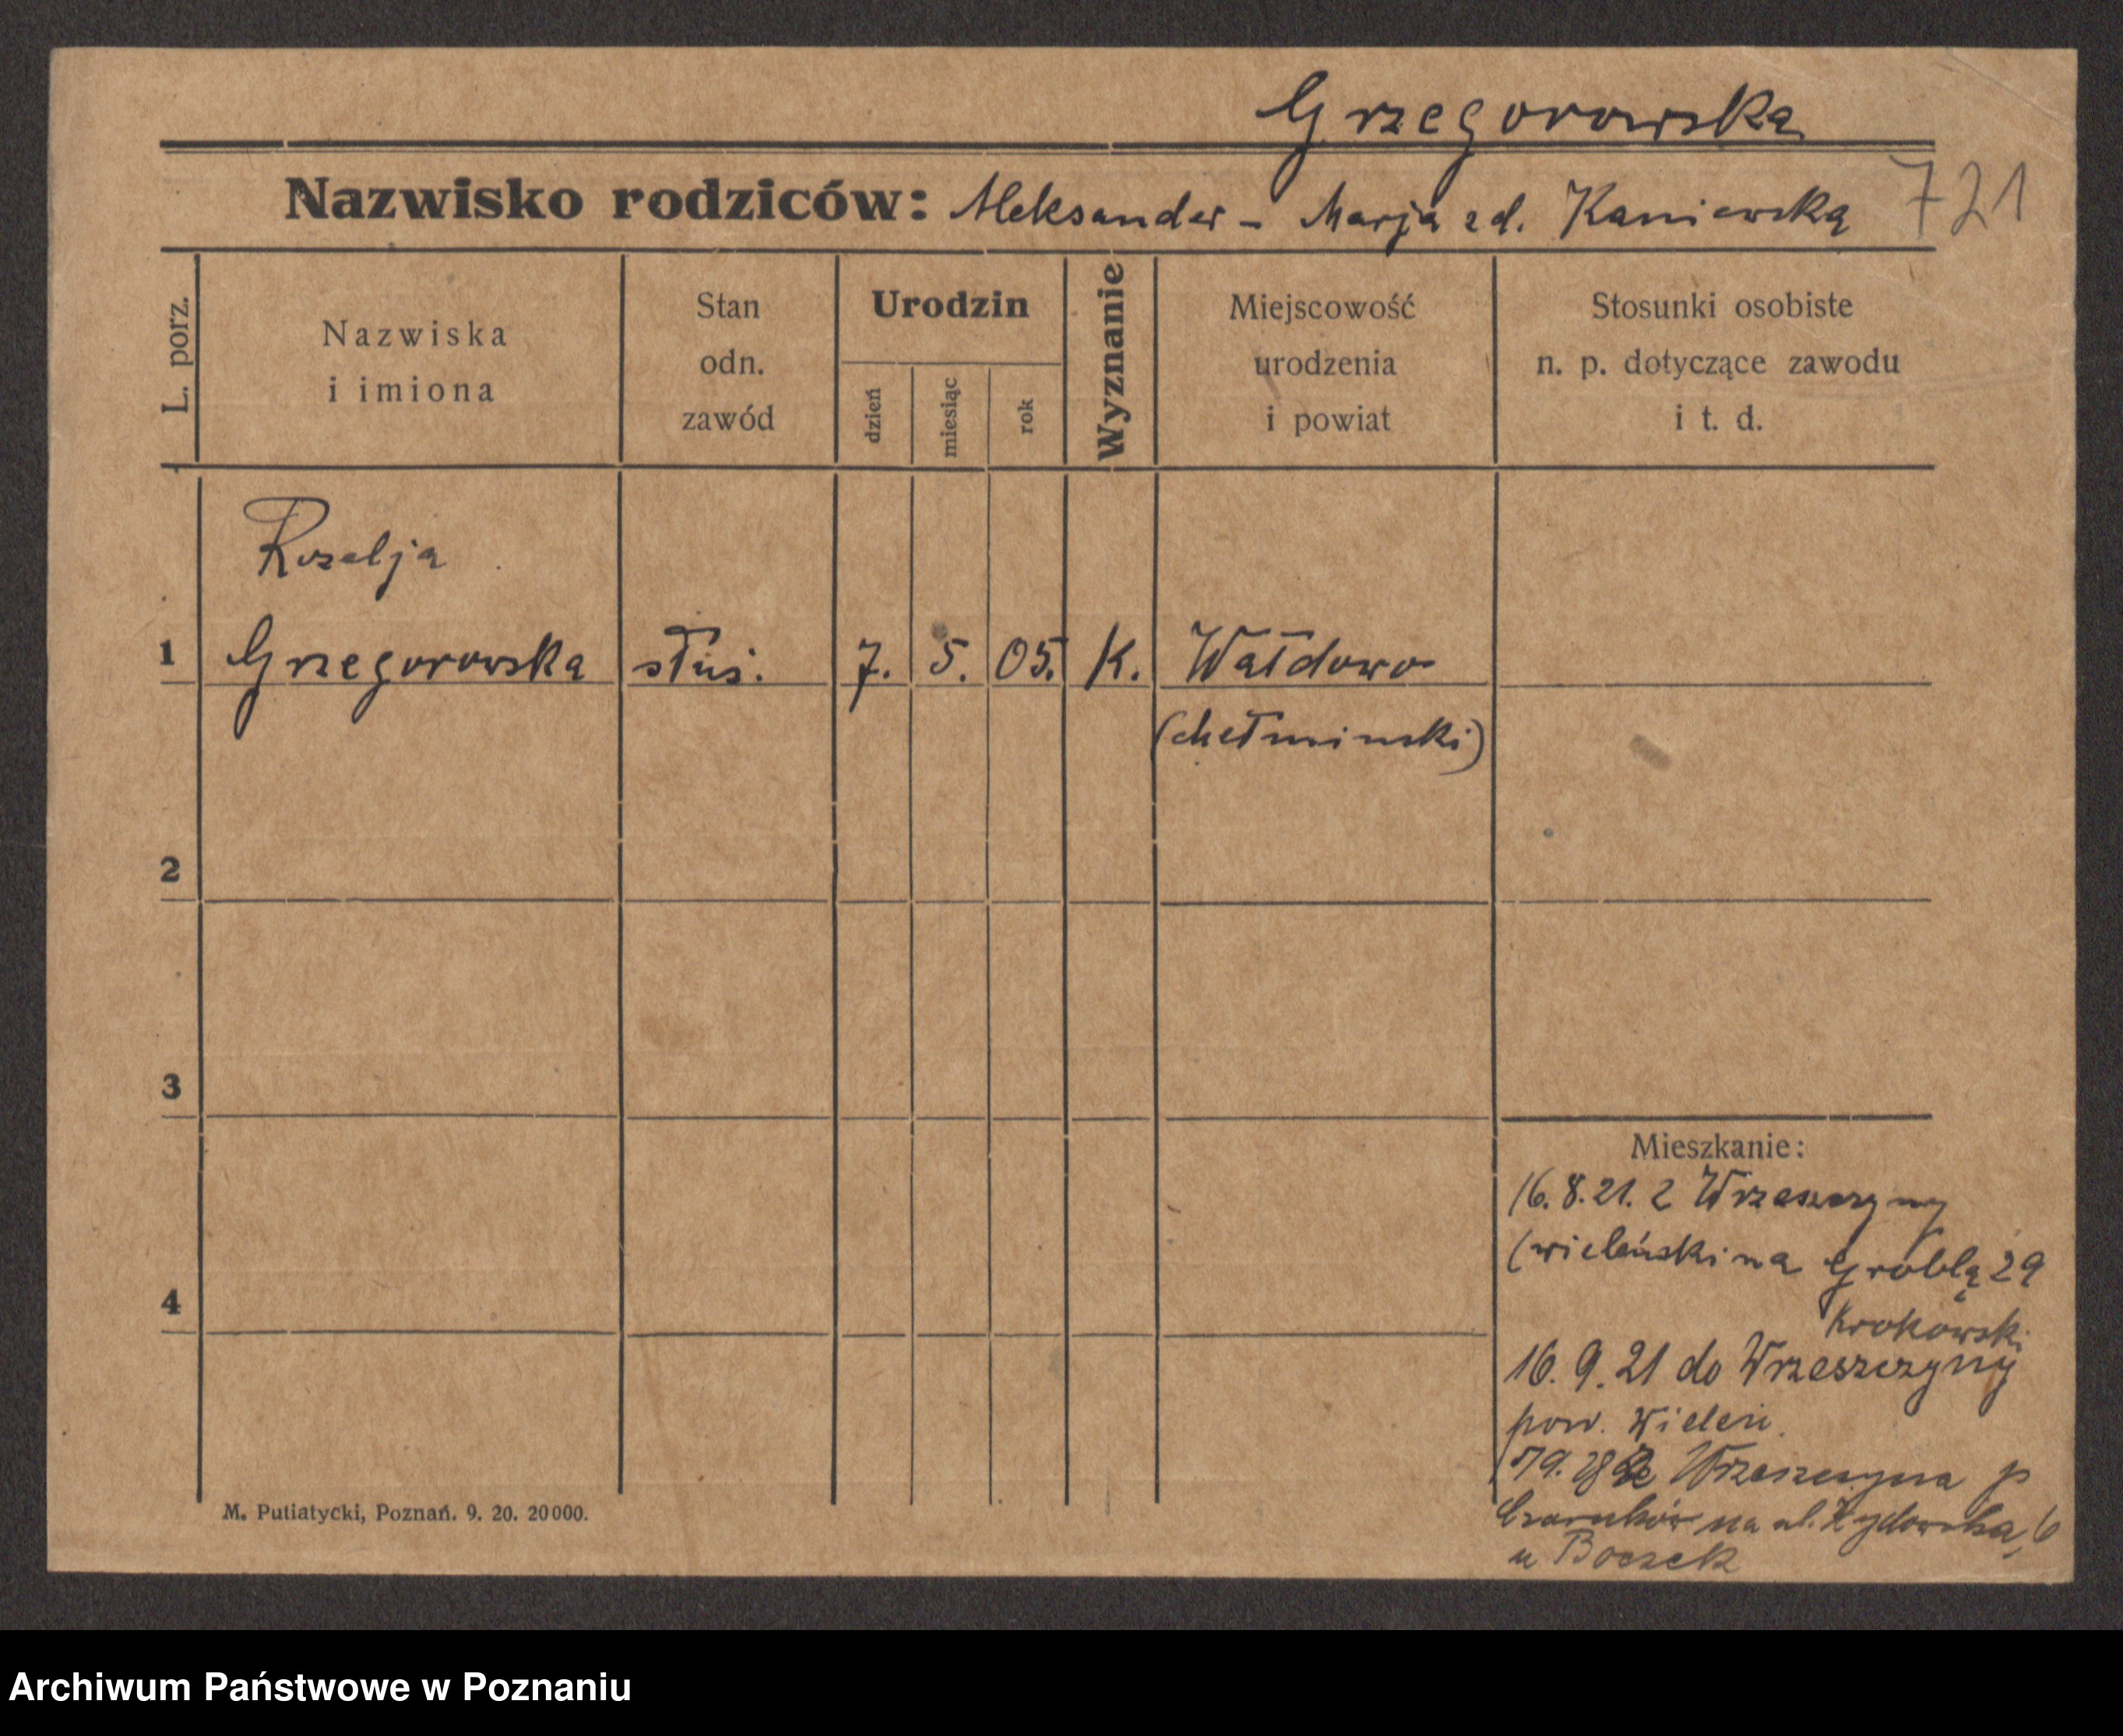 Grzegorowska
Nazwisko rodziców: Aleksander - Marja zd. Kaniewska 721
L. porz.
Nazwiska
i imiona
Stan
odn.
zawód
Urodzin
dzień
miesiąc
rok
Wyznanie
Miejscowość
urodzenia
i powiat
Stosunki osobiste
n. p. dotyczące zawodu
i t. d.
Rozalja
1 Grzegorowska służ. 7. 5. 05. K. Wałdowo
(chełminski)
2
3
4
Mieszkanie:
16.8.21. z Wrzeszczyny
(wieleński na Groblą 29
Krokowski
16. 9. 21 do Wrzeszczyny
pow. Wieleń.
Wrzeszczyna p
Czarnków na ul. Żydowska 6
u Boczek
M. Putiatycki, Poznań. 9. 20. 20000.
Archiwum Państwowe w Poznaniu